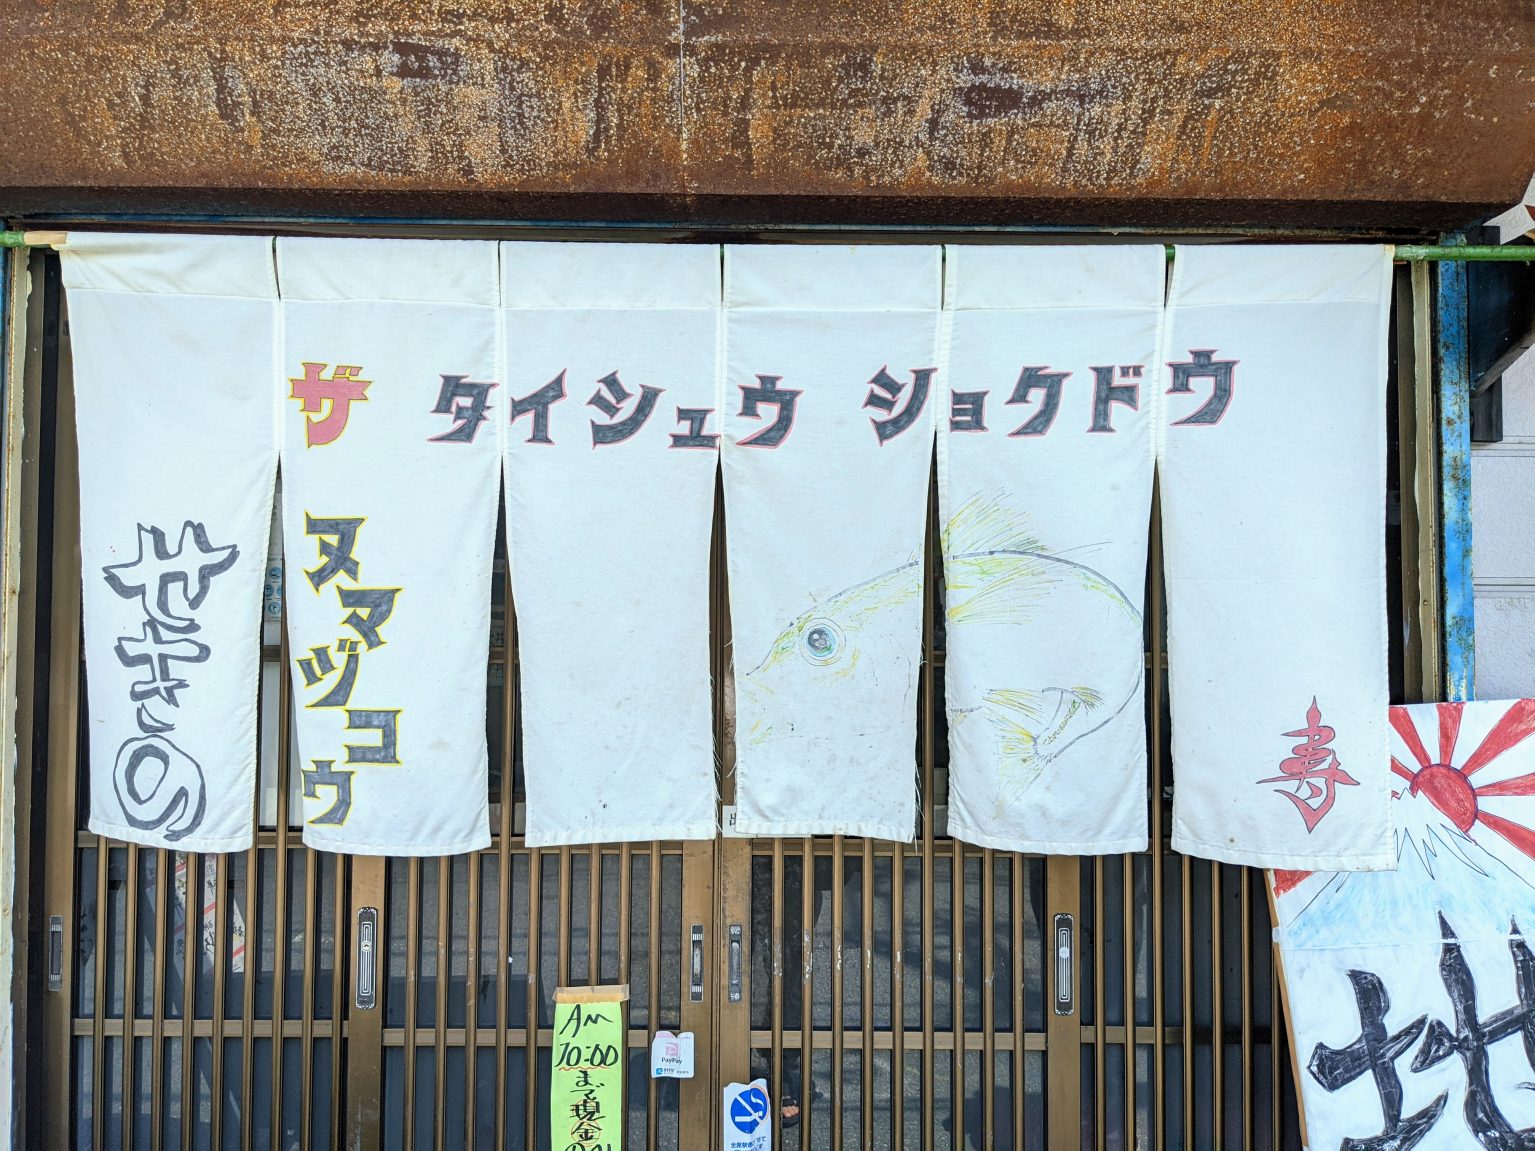 ザ タイシュウ ショクドウ
ヌマヅコウ
寿
AM
10:00
まで現金
のみ
PayPay
地